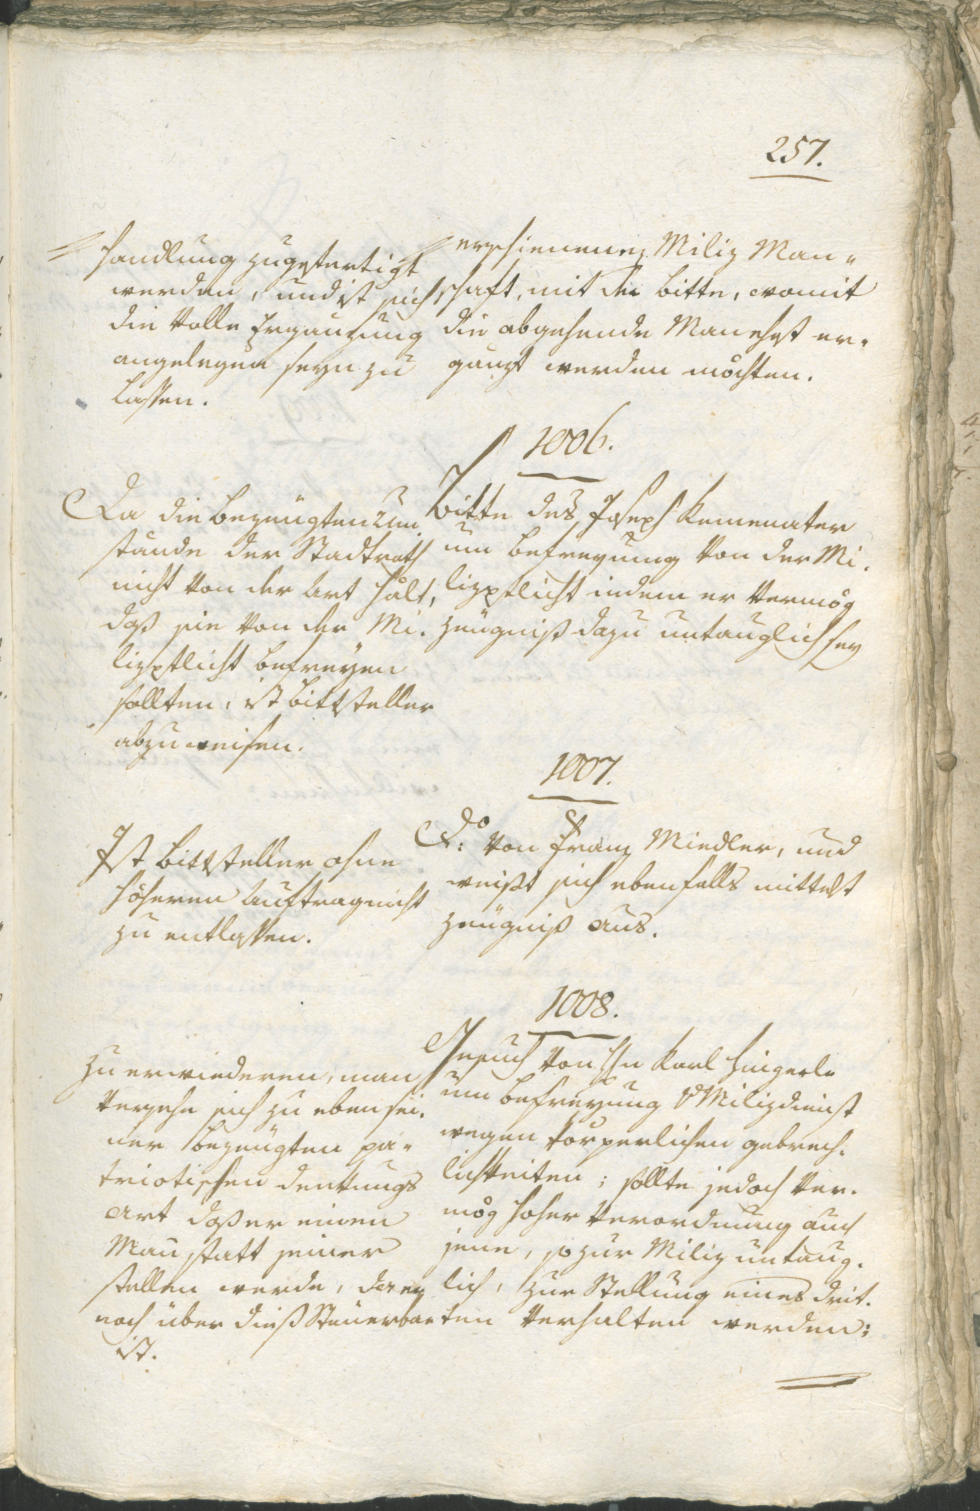 257.
handlung zugefertigt
werden, und ist sich
die volle Ergänzung
angelegen seyn zu
lassen.
erschienenen Miliz Man-
schaft, mit der bitte, womit
die abgehende Man ehest er-
gänzt werden möchten.
1006.
Da die bezeugten Um
stände der Stadtrath
nicht von der Art hält,
daß sie von der Mi-
lizpflicht befreyen
sollten, ist bittsteller
abzuweisen.
Bitte des Joseph Kemenater
um befreyung von der Mi-
lizpflicht indem er vermög
Zeugniß dazu untauglich sey
1007.
Ist bittsteller ohne
höheren Auftrag nicht
zu entlassen.
Do: von Franz Miedler, und
weißt sich ebenfalls mittelst
Zeugniß aus.
1008.
Zu erwiederen, man
versehe sich zu eben sei-
ner bezeugten pa-
triotischen denkungs
Art daß er einen
Man statt seiner
stellen werde, der er
noch über dieß Steuerbar
ist.
Gesuch von Hn Karl Hingerle
um befreyung v Milizdienst
wegen körperlichen gebrech-
lichkeiten; sollte jedoch ver-
mög hoher Verordnung auch
jene, so zur Miliz untaug-
lich, zur Stellung eines drit-
ten verhalten werden;